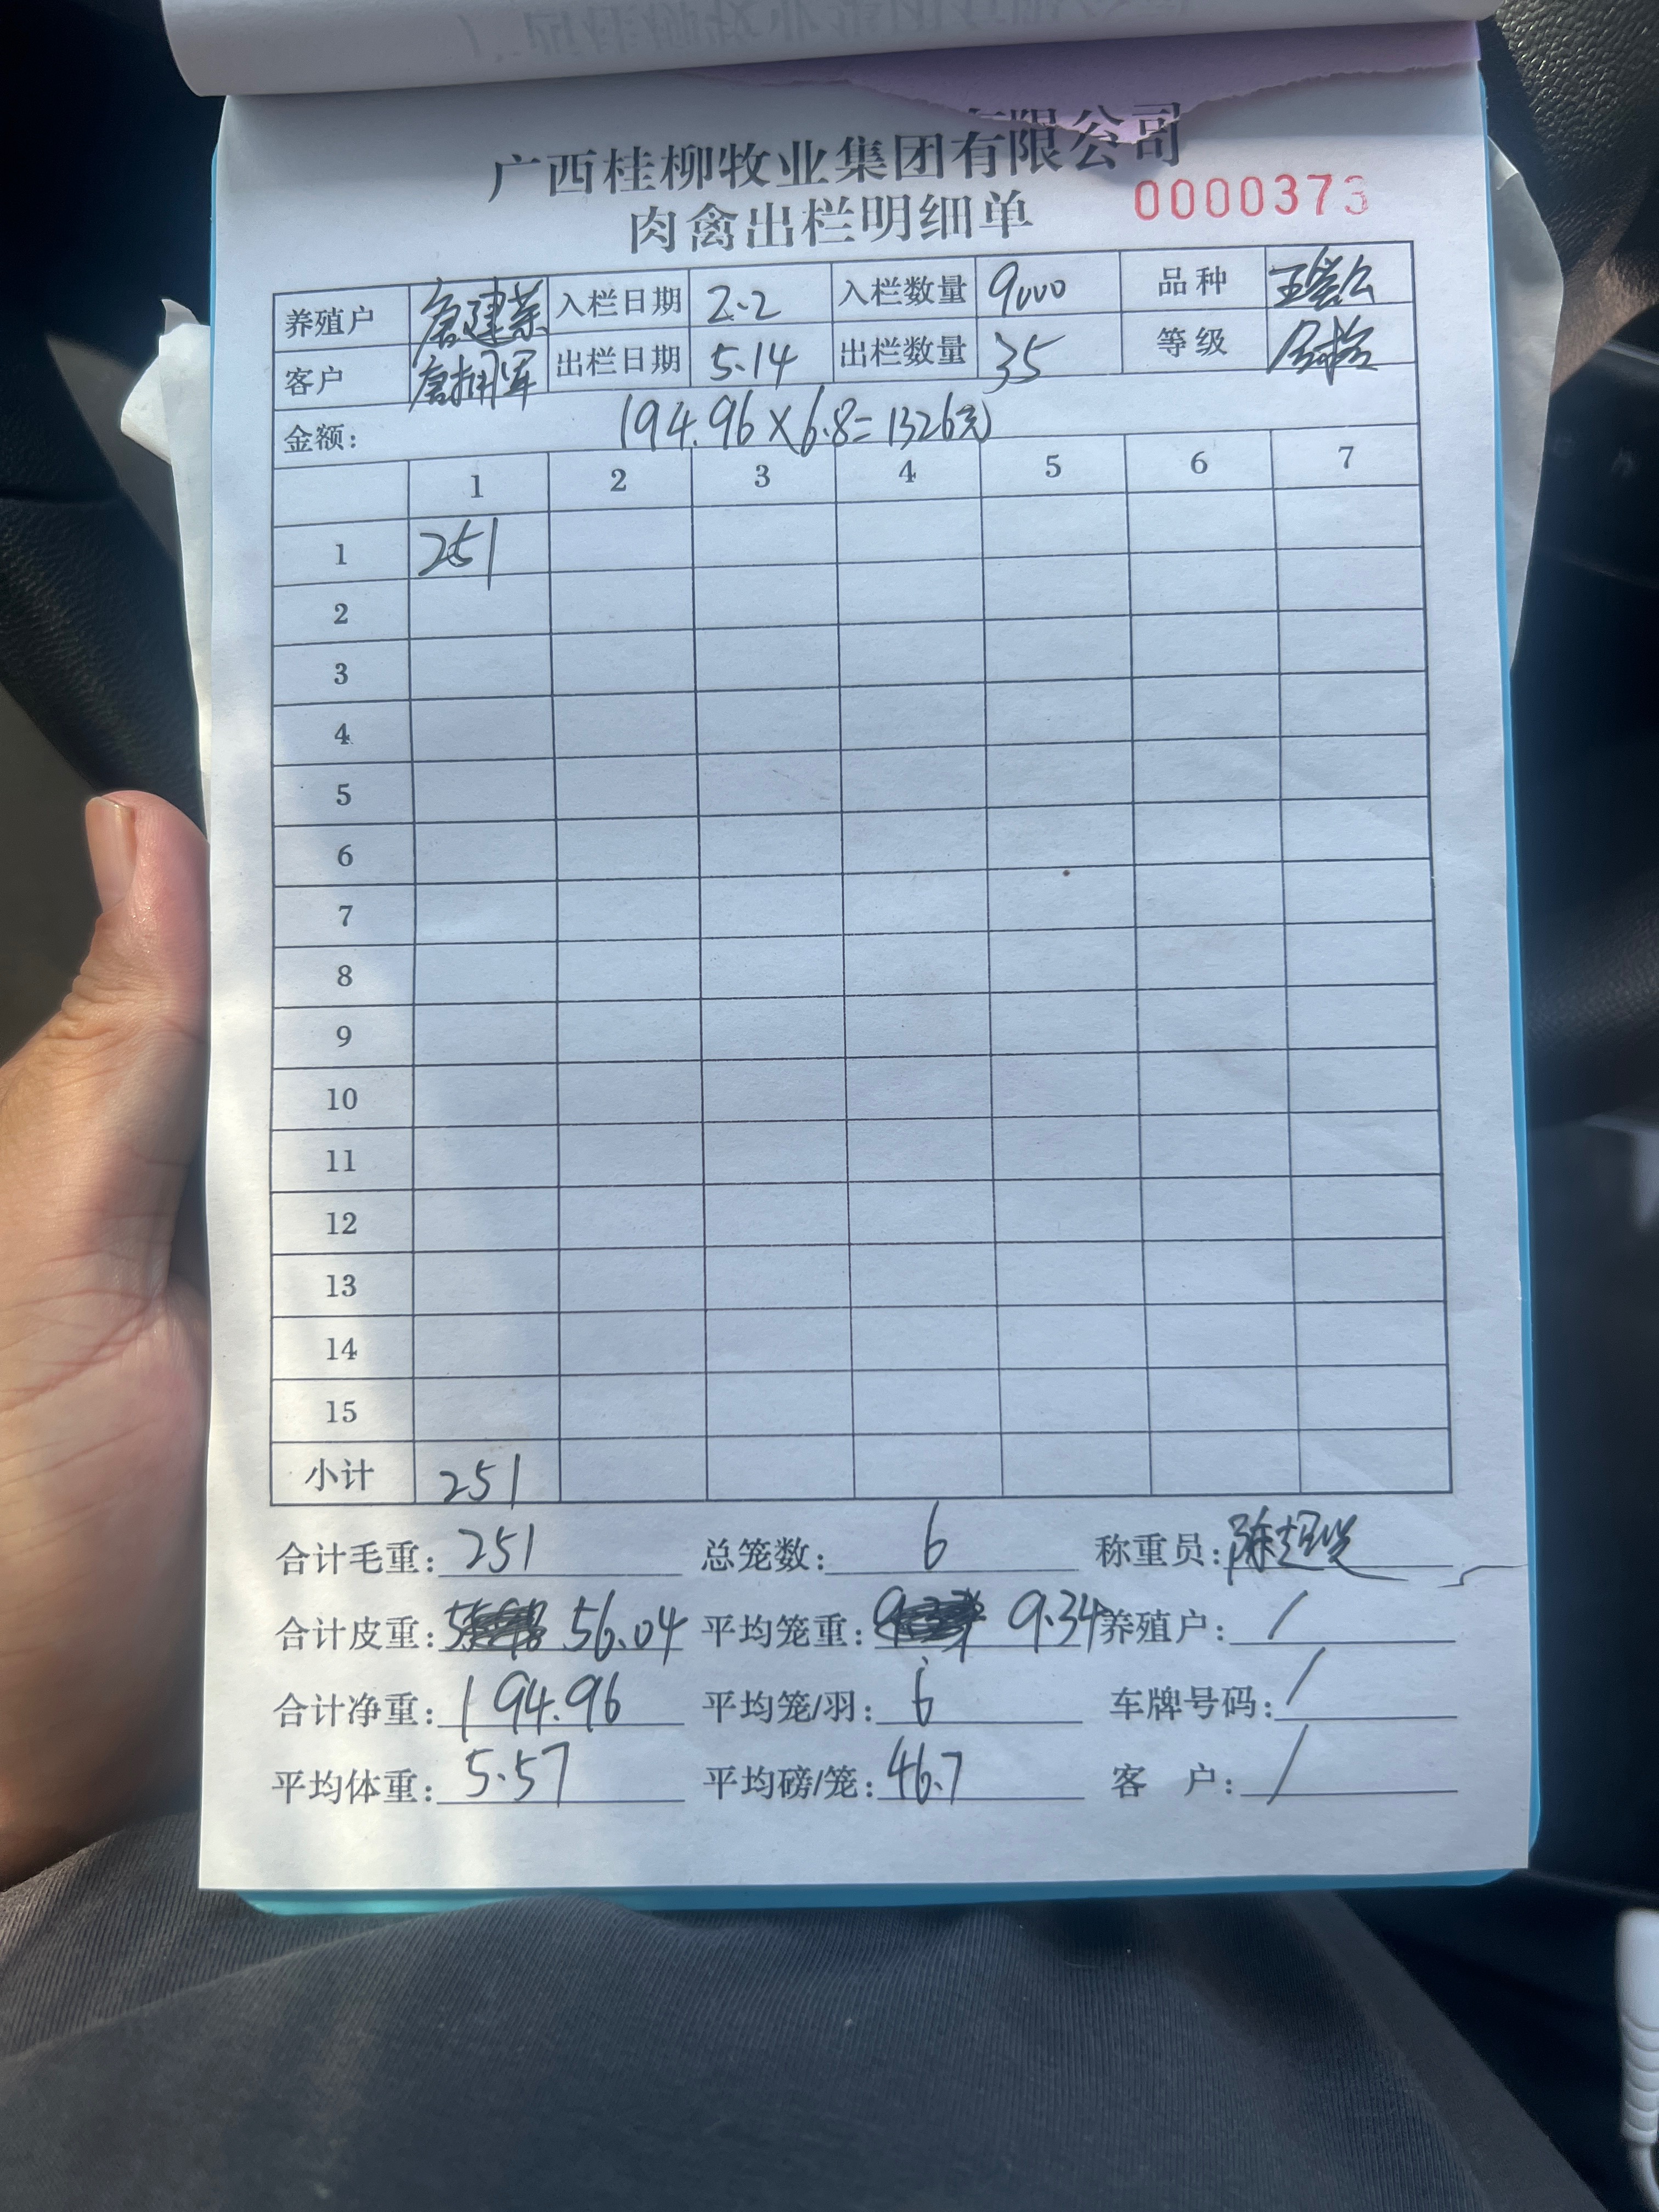 有限公司
广西桂柳牧业集团有限公司
肉禽出栏明细单 0000373
养殖户 唐建荣 入栏日期 2.2 入栏数量 9000 品种
客户 唐拥军 出栏日期 5.14 出栏数量 35 等级
金额: 194.96×6.8=1326元
1 2 3 4 5 6 7
1 251
2
3
4
5
6
7
8
9
10
11
12
13
14
15
小计 251
合计毛重: 251 总笼数: 6 称重员:
合计皮重: 56.04 平均笼重: 9.34 养殖户: /
合计净重: 194.96 平均笼/羽: 6 车牌号码: /
平均体重: 5.57 平均磅/笼: 46.7 客 户: /